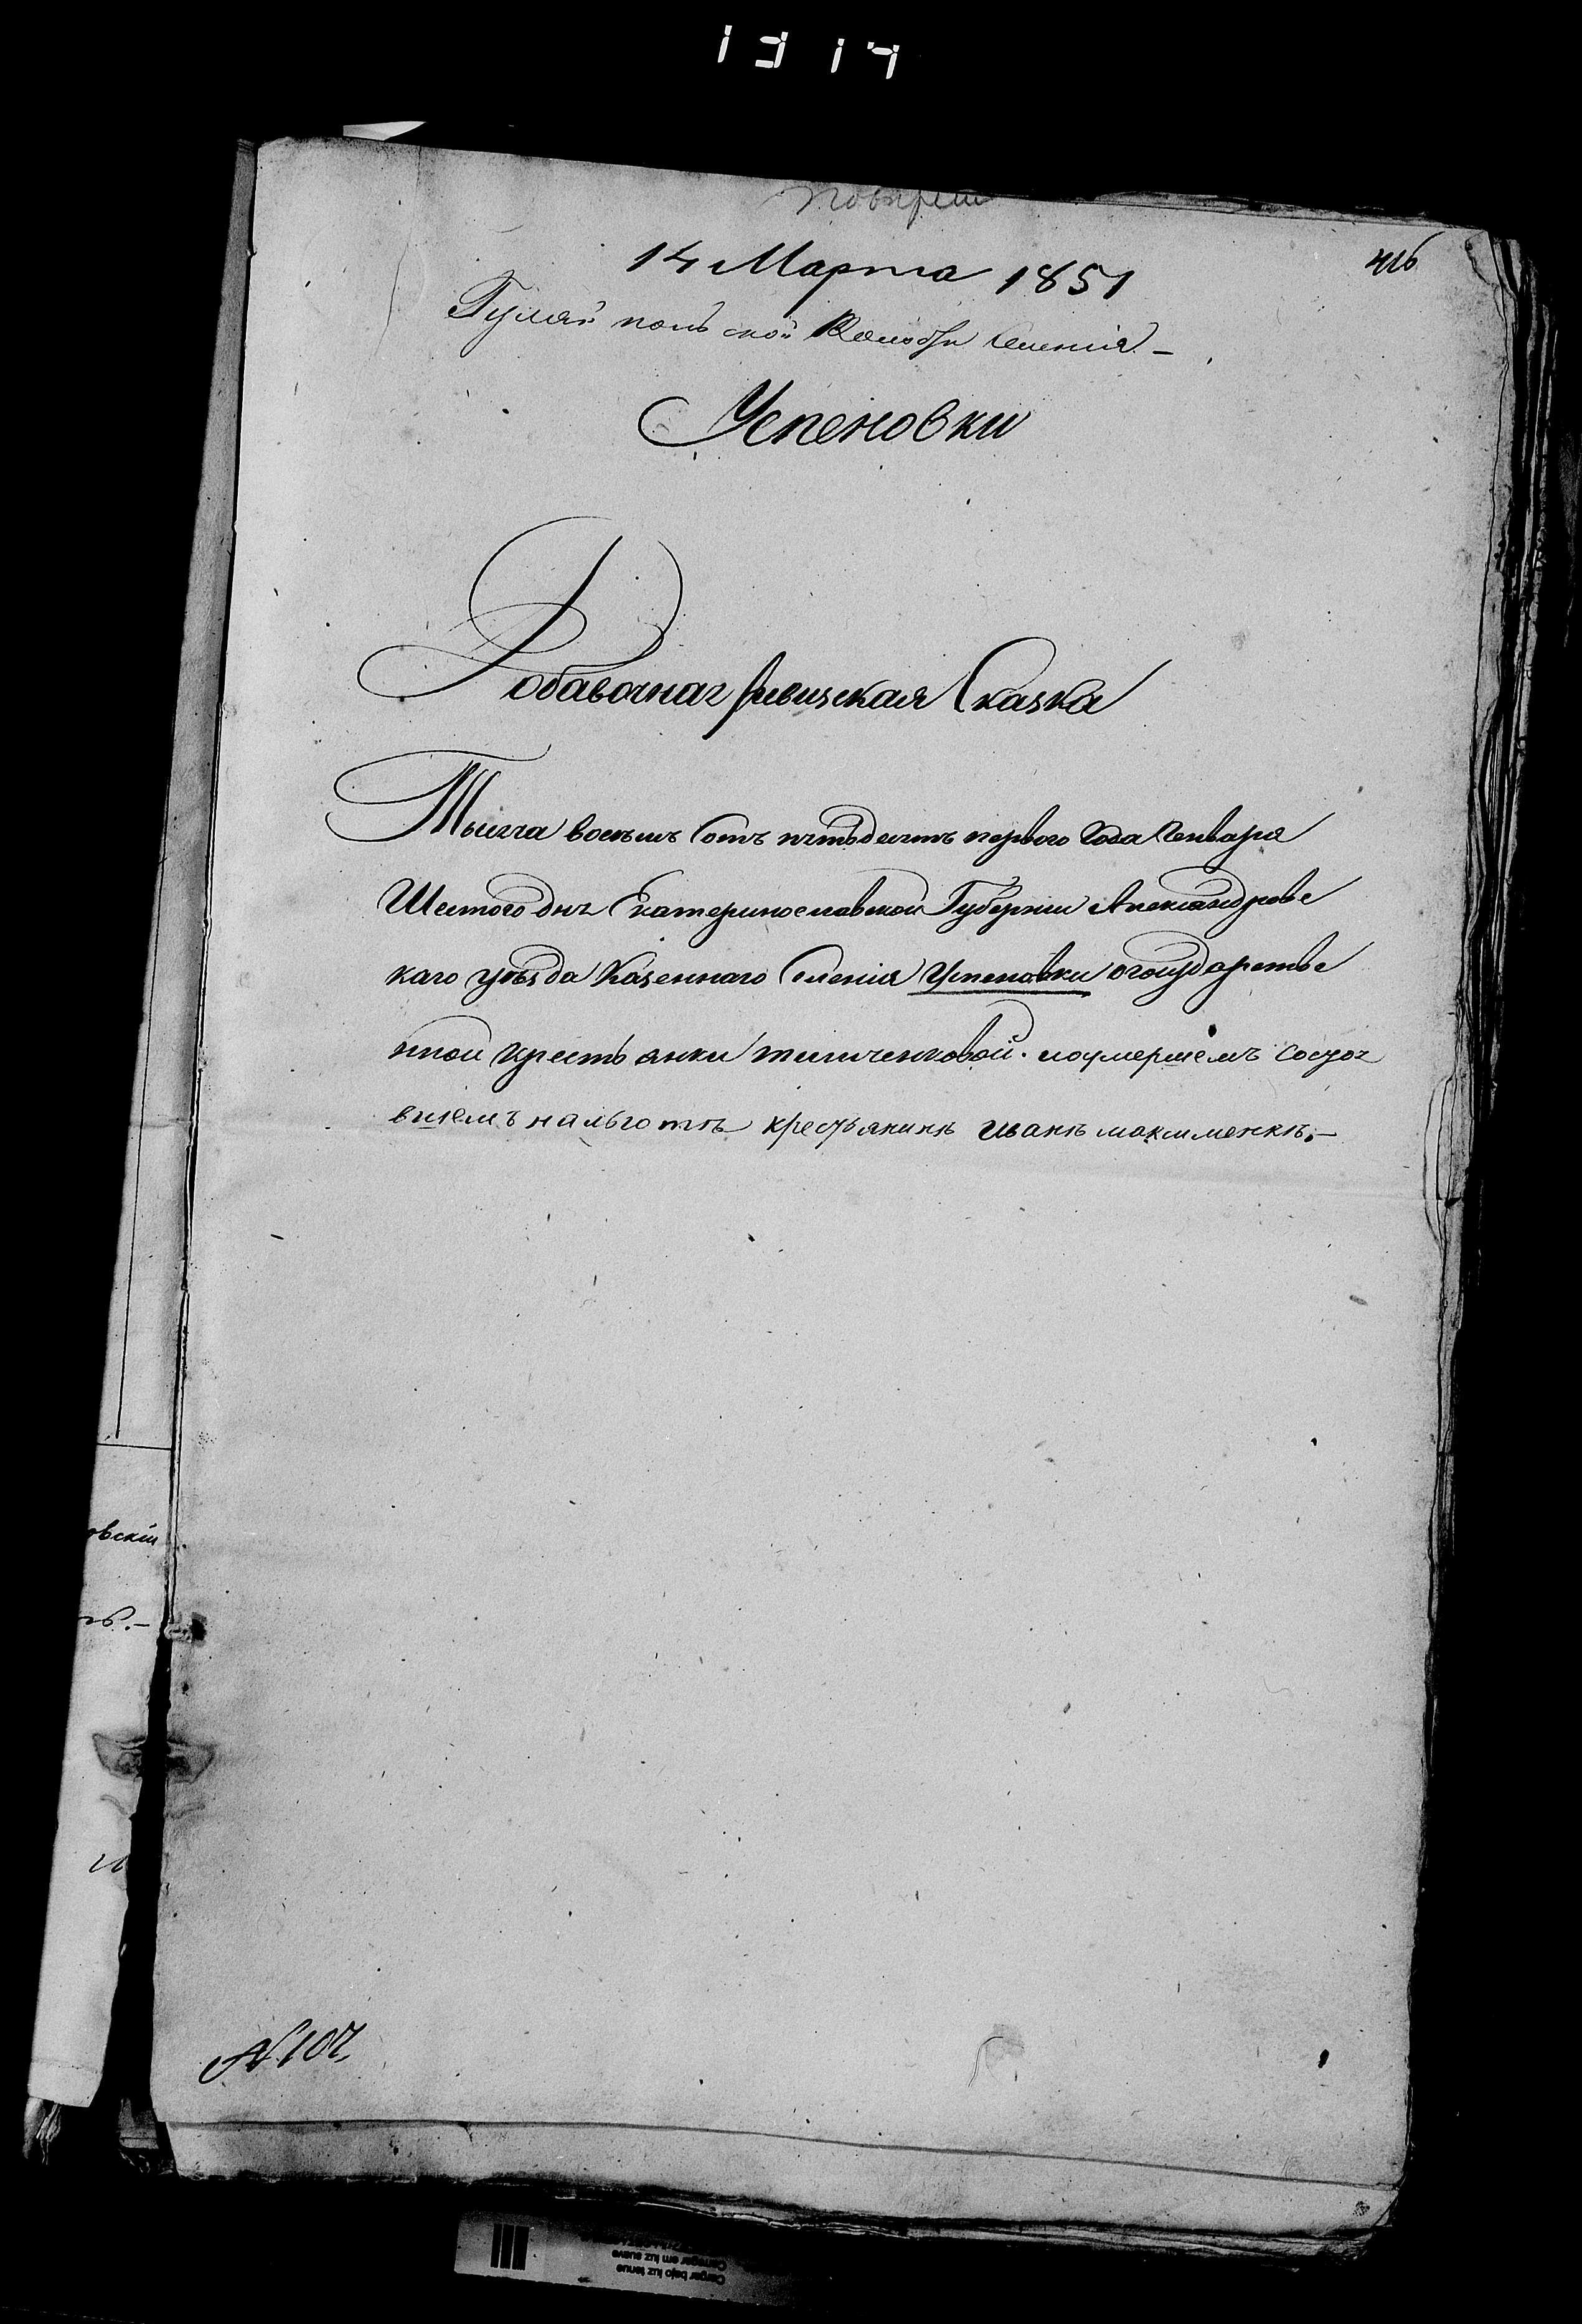 1314
14 Марта 1851
416
Гуляй поль ской Волости Селенія –
Успеновки
Добавочная Ревизская Сказка
Тысяча восемь Сотъ пятьдесятъ первого Года Генваря
Шестого дня Екатеринославской Губерніи Александровс
каго уѣзда Казеннаго Селенія Успеновки огосударстве
нной кресть янки тимченковой. иоумершемъ состоя
вшемъ нальготѣ крестьянинѣ иванѣ максименкѣ.–
овскій
N. 107.
Cargar bajo luz tenue
Carregar em luz suave